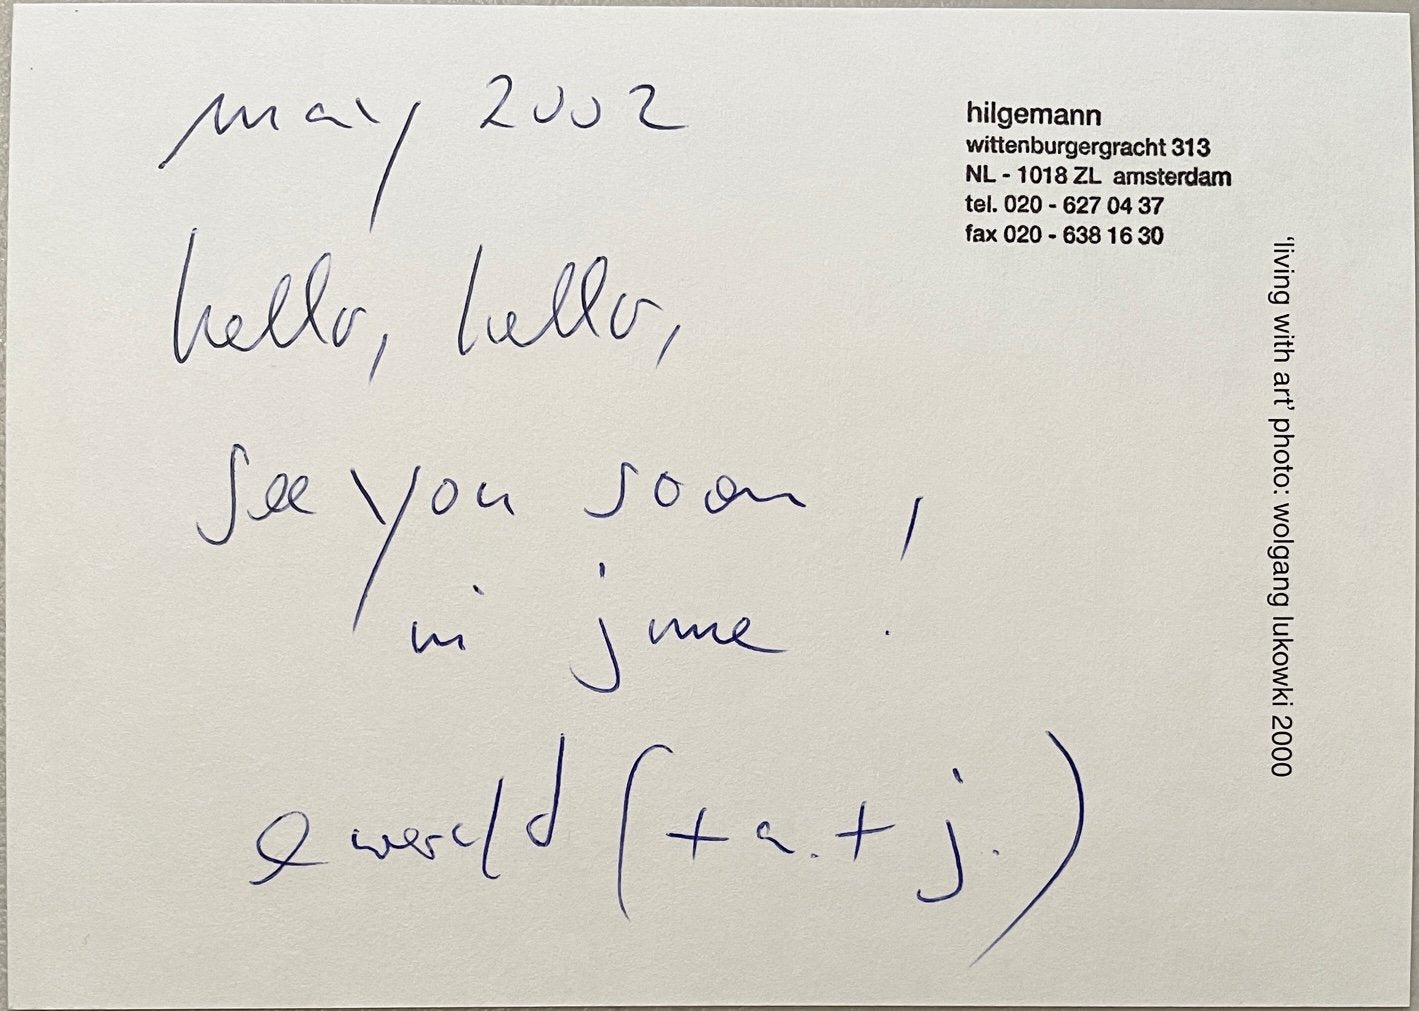 may 2002
hello, hello,
see you soon
in june !
ewerald (+ a. + j.)
hilgemann
wittenburgergracht 313
NL - 1018 ZL amsterdam
tel. 020 - 627 04 37
fax 020 - 638 16 30
'living with art' photo: wolgang lukowki 2000